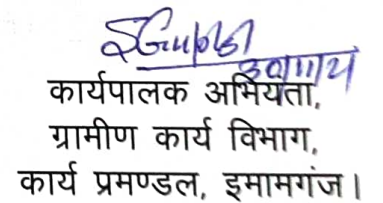 30/11/21
कार्यपालक अभियंता,
ग्रामीण कार्य विभाग,
कार्य प्रमण्डल, इमामगंज।